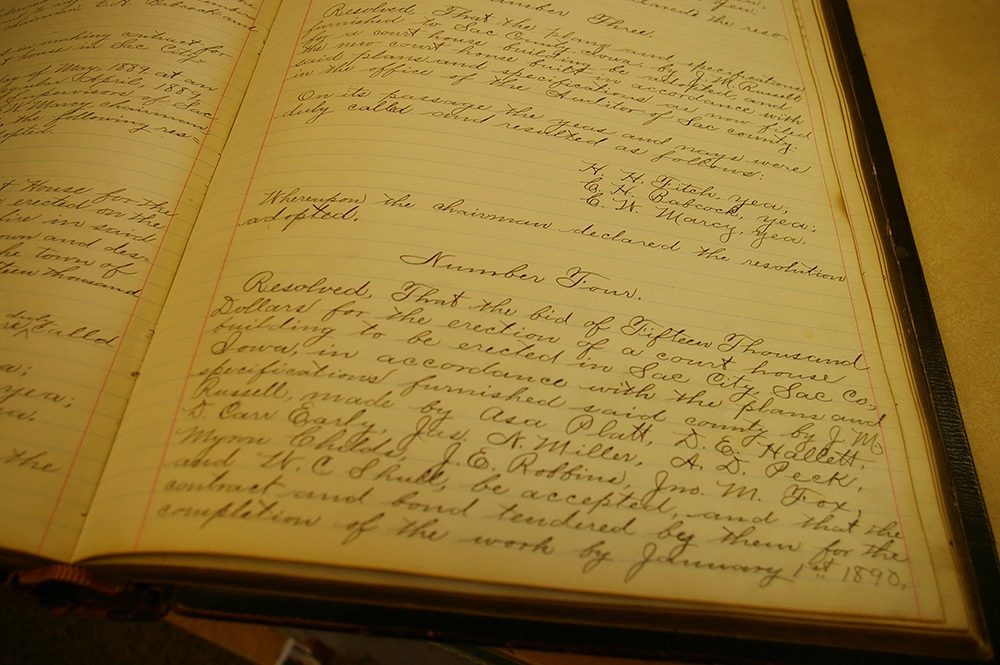 in making contract for
house in Sac City
of May 1889, at an
April, 1889,
Supervisors of Sac
Marcy chairman
the following res=
t House for the
erected on the
in said
own and des=
the town of
teen thousand
duly
Called
yea;
the
Number Three.
Resolved, That the plans and specifications
furnished to Sac County, Iowa, by J. M. Russell
for a court house building be adopted and
the new court house built in accordance with
said plans and specifications as now filed
in the office of the Auditor of Sac county.
On its passage the yeas and nays were
duly called and resulted as follows:
H. H. Fitch, yea;
C. H. Babcock, yea;
C. W. Marcy, yea.
Whereupon the chairman declared the resolution
adopted.
Number Four.
Resolved, That the bid of Fifteen Thousand
Dollars for the erection of a court house
building to be erected in Sac City, Sac Co.,
Iowa, in accordance with the plans and
specifications furnished said county by J. M.
Russell, made by Asa Platt, D. E. Hallett,
D. Carr Early, Jas. N. Miller, A. D. Peck,
Myron Childs, J. E. Robbins, Jno. M. Fox,
and W. C. Shull, be accepted, and that the
contract and bond tendered by them for the
completion of the work by January 1st 1890.